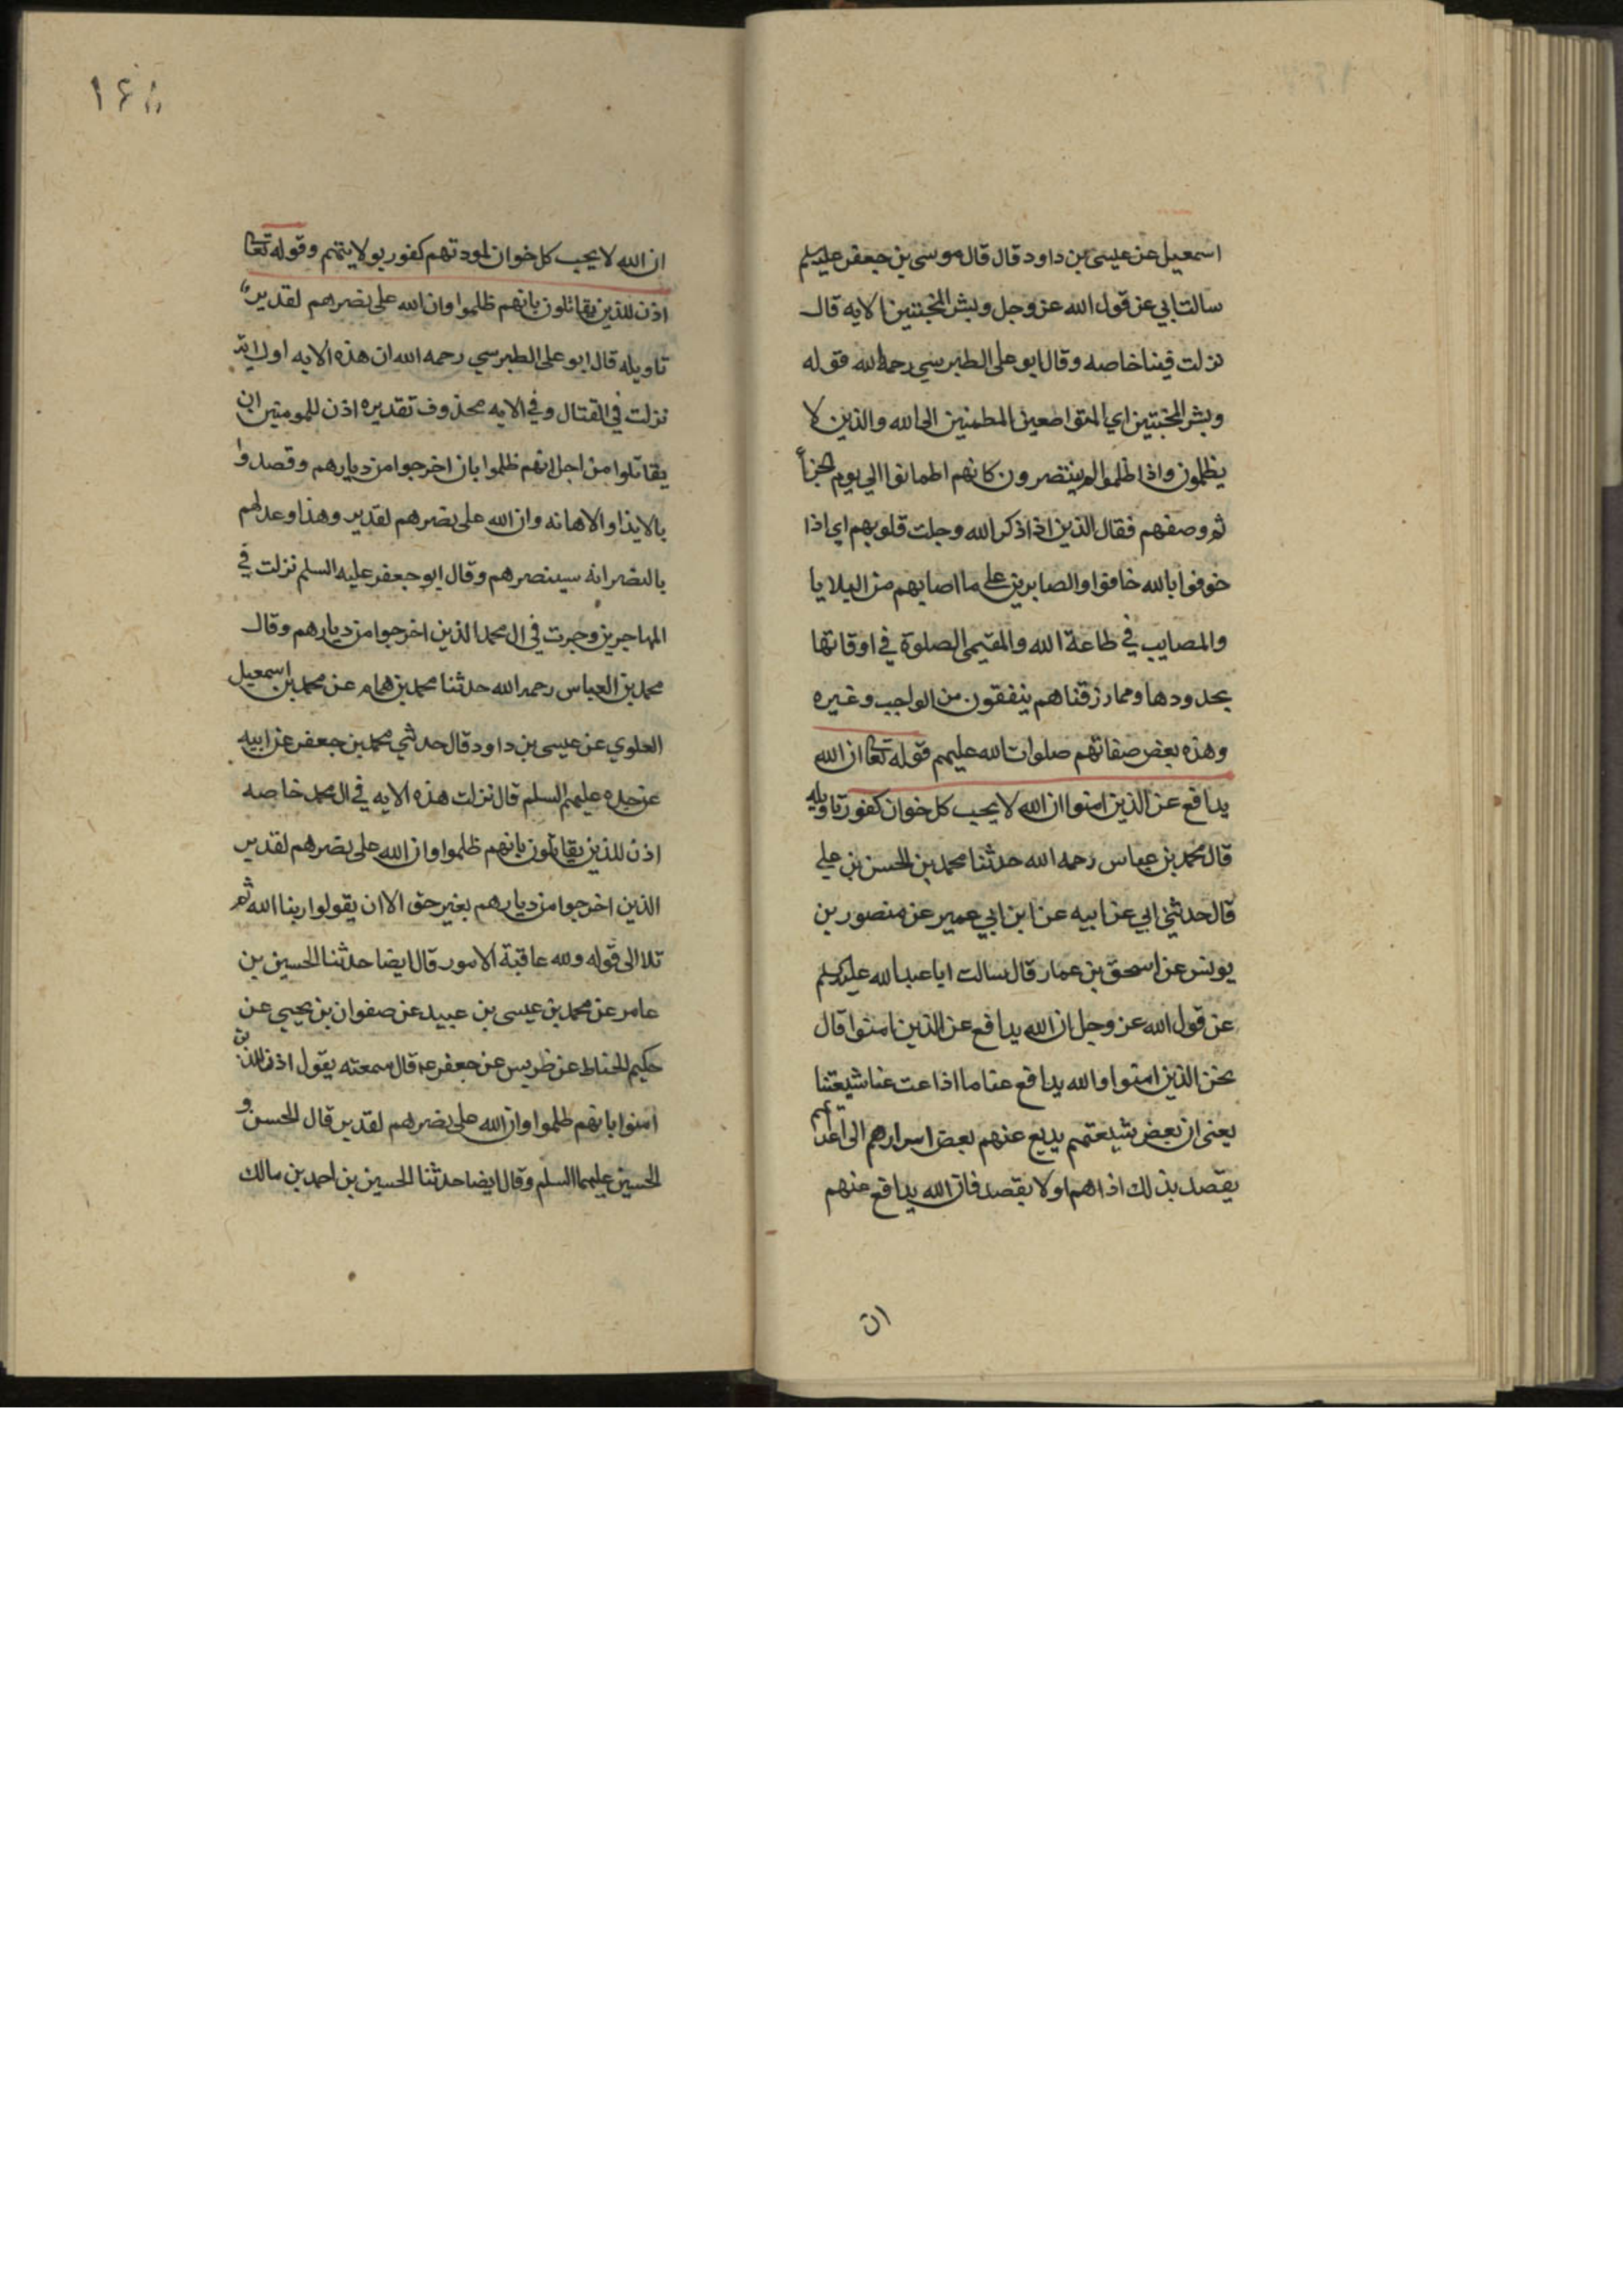 اسمعيل عن عيسى بن داود قال قال موسى بن جعفر عليه سلم
سالت ابي عن قول الله عز وجل وبشر المخبتين الايه قال
نزلت فينا خاصه وقال ابو على الطبرسي رحمه الله قوله
وبشر المخبتين اي المتواضعين المطمنين الى الله والذين لا
يظلمون واذا ظلموا لم ينتصرون كانهم اطمانوا الي يوم الجزآ
ثم وصفهم فقال الذين اذا ذكر الله وجلت قلوبهم اي اذا
خوفوا بالله خافوا والصابرين على ما اصابهم من البلايا
والمصايب في طاعة الله والمقيمى الصلوة في اوقاتها
بحدودها ومما رزقناهم ينفقون من الواجب وغيره
وهذه بعض صفاتهم صلوات الله عليهم قوله تعا ان الله
يدافع عن الذين امنوا ان الله لا يحب كل خوان كفور تاويله
قال محمد بن عباس رحمه الله حدثنا محمد بن الحسن بن علي
قال حدثني ابي عن ابيه عن ابن ابي عمير عن منصور بن
يونس عن اسحق بن عمار قال سالت ابا عبد الله عليه سلم
عن قول الله عز وجل ان الله يدافع عن الذين امنوا قال
نحن الذين امنوا والله يدافع عنا ما اذاعت عنا شيعتنا
يعنى ان بعض شيعتهم يديع عنهم بعض اسرارهم الى اعدآئهم
يقصد بذلك اذاهم او لا يقصد فان الله يدافع عنهم
ان
١٤٨
ان الله لا يحب كل خوان لمودتهم كفور بولايتهم وقوله تعا
اذن للذين يقاتلون بانهم ظلموا وان الله على نصرهم لقدير
تاويله قال ابو على الطبرسي رحمه الله ان هذه الايه اول اية
نزلت في القتال وفي الايه محذوف تقديره اذن للمومنين ان
يقاتلوا من اجل انهم ظلموا بان اخرجوا من ديارهم وقصدوا
بالايذا والاهانه وان الله على نصرهم لقدير وهذا وعد لهم
بالنصر انه سينصرهم وقال ابو جعفر عليه السلم نزلت في
المهاجرين وجرت في ال محمد الذين اخرجوا من ديارهم وقال
محمد بن العباس رحمه الله حدثنا محمد بن همام عن محمد بن اسمعيل
العلوي عن عيسى بن داود قال حدثني محمد بن جعفر عن ابيه
عن جده عليهم السلم قال نزلت هذه الايه في ال محمد خاصه
اذن للذين يقاتلون بانهم ظلموا وان الله على نصرهم لقدير
الذين اخرجوا من ديارهم بغير حق الا ان يقولوا ربنا الله ثم
تلا الى قوله ولله عاقبة الامور قال ايضا حدثنا الحسين بن
عامر عن محمد بن عيسى بن عبيد عن صفوان بن يحيي عن
حكيم الحناط عن ظريس عن جعفر ع قال سمعته يقول اذن للذين
امنوا بانهم ظلموا وان الله على نصرهم لقدير قال الحسن و
الحسين عليهما السلم وقال ايضا حدثنا الحسين بن احمد بن مالك